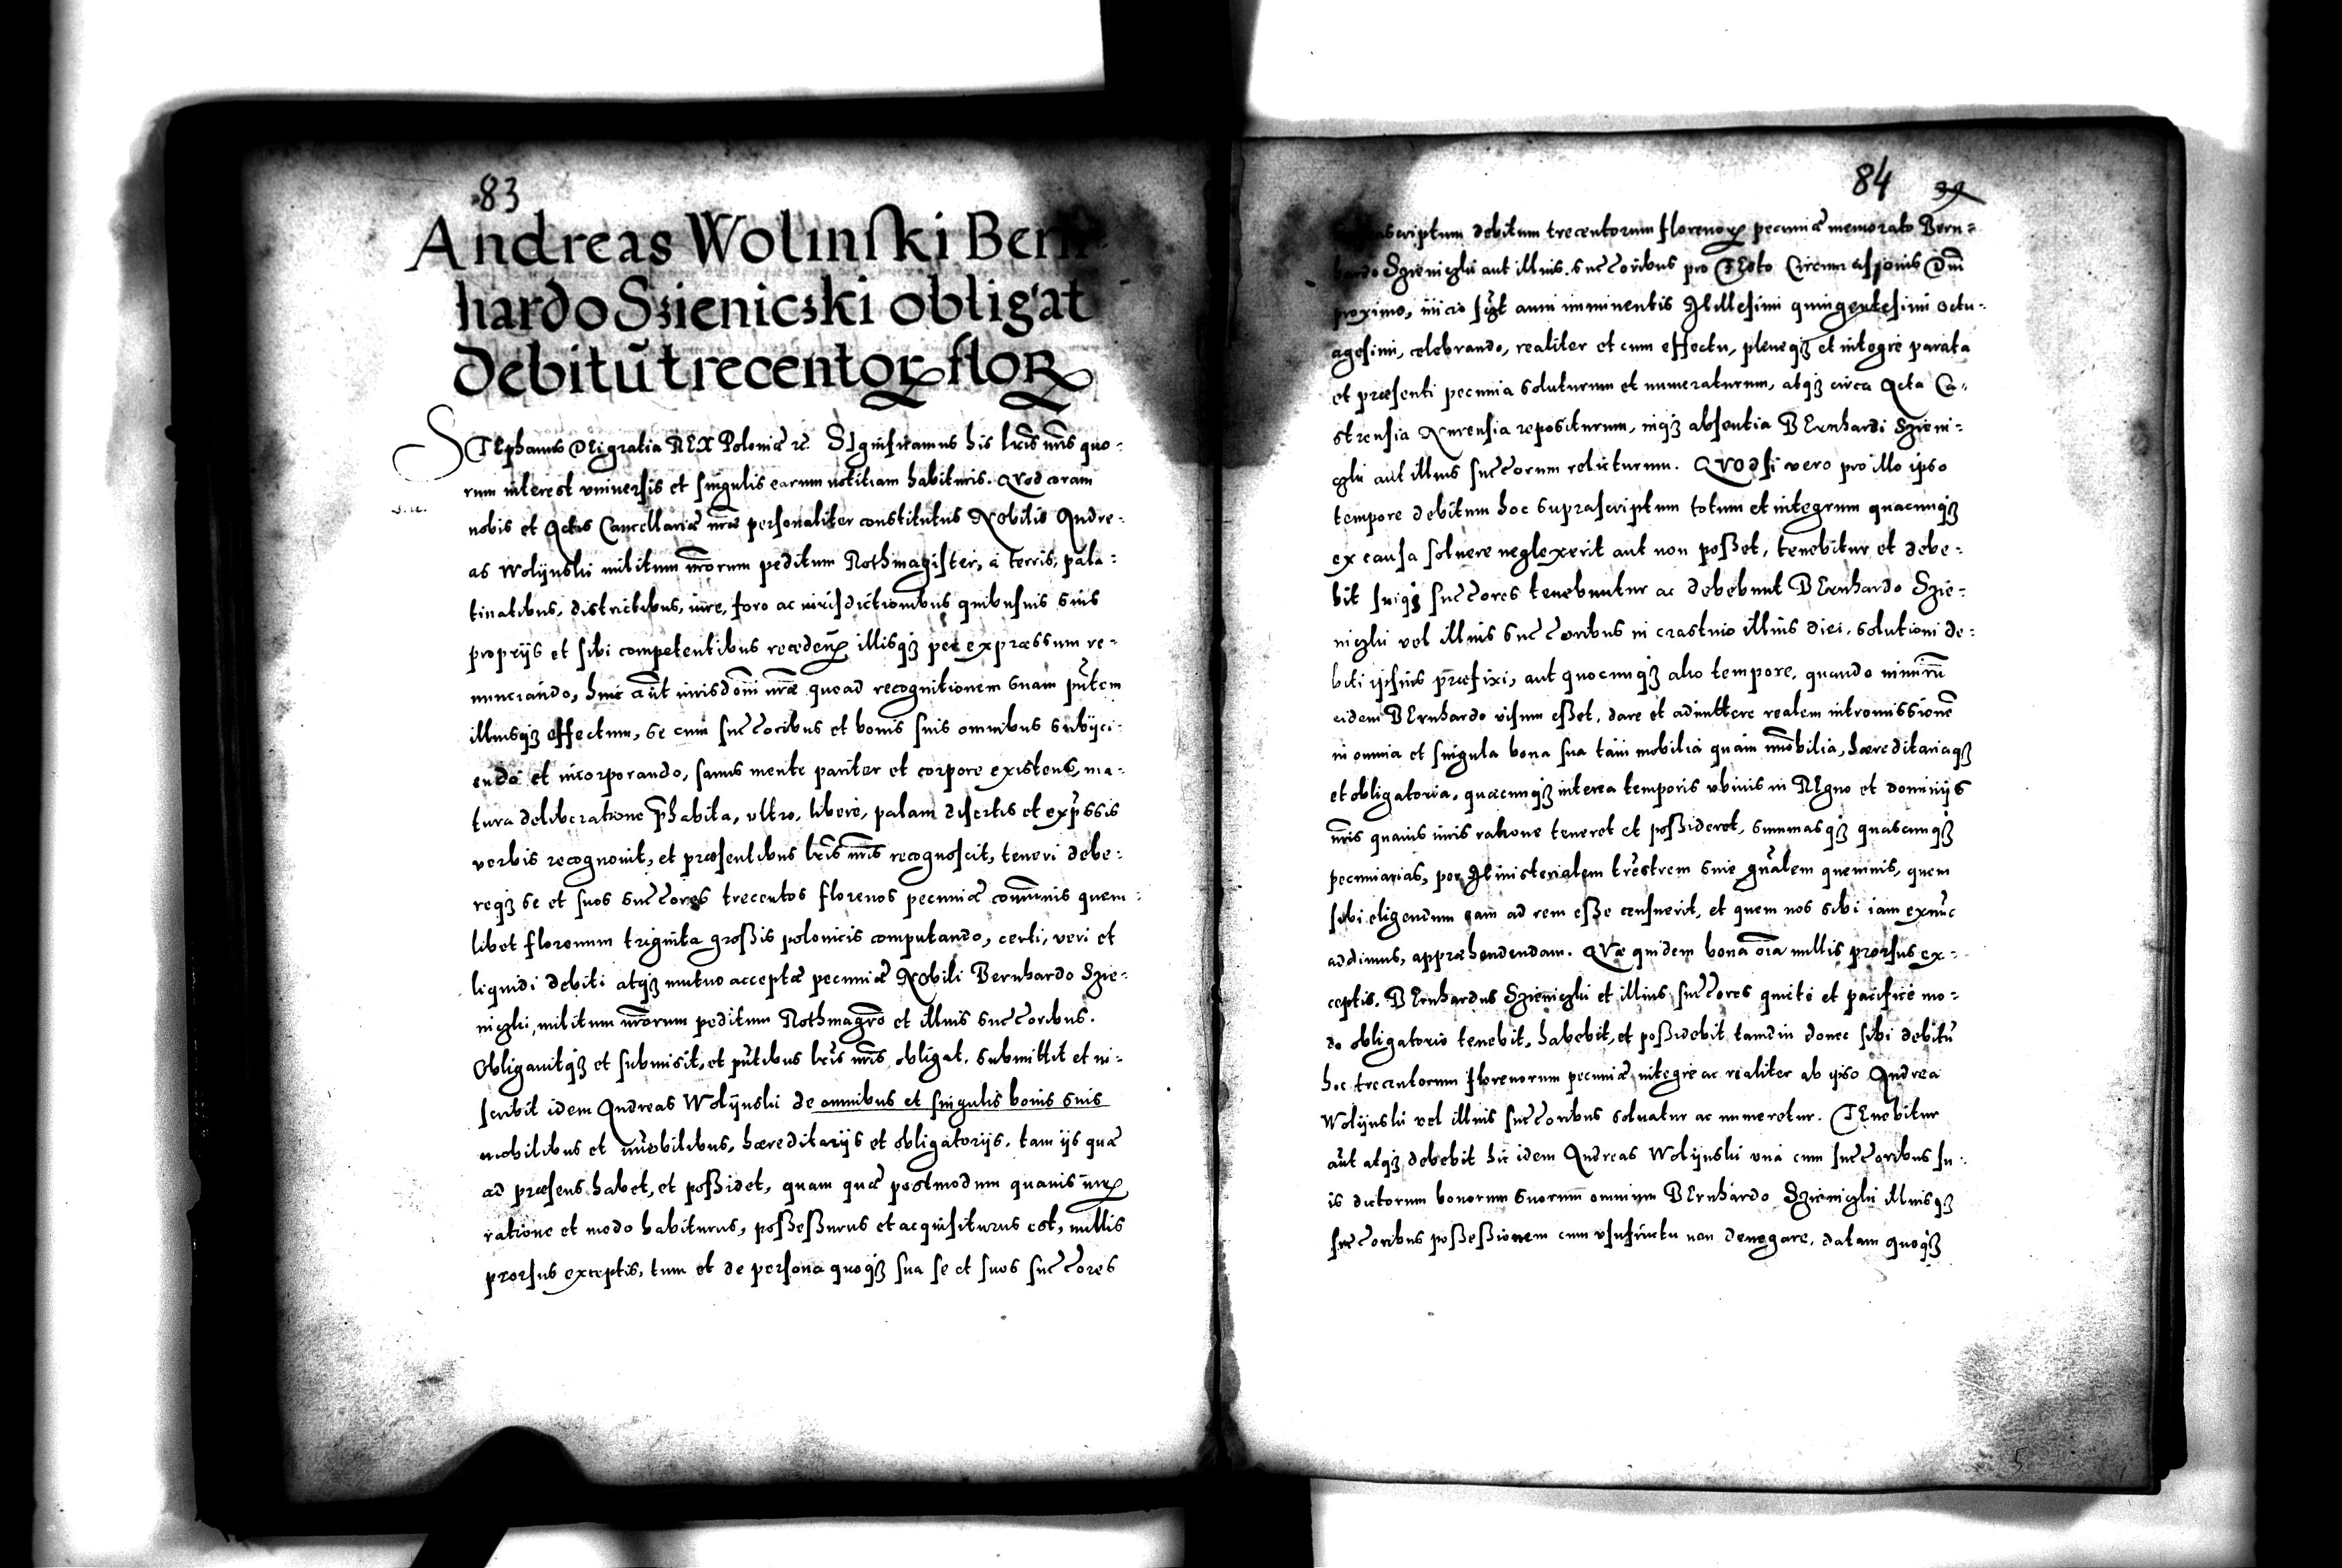 83
Andreas Wolinski Bern
hardo Szieniczki obligat
debitū trecentorꝝ florꝝ
STEphanus DEi gratia REX Poloniæ ꝛc. SIgnificamus his lr̃is nr̃is quo-
rum interest vniuersis et singulis earum notitiam habituris. QVod coram
nobis et Actis Cancellariæ nr̃æ personaliter constitutus Nobilis Andre-
as Wolÿnski militum nr̃orum peditum Rothmagister, à terris, pala-
tinatibus, districtibus, iure, foro ac iurisdictionibus quibusuis suis
proprijs et sibi competentibus recedenꝭ illisqꝫ per expræssum re-
nunciando, huic aũt iurisdõni nr̃æ quoad recognitionem suam pñtem
illiusqꝫ effectum, se cum succ̃oribus et bonis suis omnibus subijci-
endo et incorporando, sanus mente pariter et corpore existens, ma-
tura deliberatione p̃habita, vltro, libere, palam disertis et exp̃ssis
verbis recognouit, et præsentibus lr̃is nr̃is recognoscit, teneri debe-
reqꝫ se et suos succ̃ores trecentos florenos pecuniæ cõmunis quem-
libet florenum triginta großis polonicis computando, certi, veri et
liquidi debiti atqꝫ mutuo acceptæ pecuniæ Nobili Bernhardo Szie-
niczki, militum nr̃orum peditum Rothmagr̃o et illius succ̃oribus.
Obligauitqꝫ et submisit, et pñtibus lr̃is nr̃is obligat, submittit et in-
scribit idem Andreas Wolÿnski de omnibus et singulis bonis suis
mobilibus et im̃obilibus, hæreditarijs et obligatorijs, tam ijs quæ
ad præsens habet, et poßidet, quam quæ postmodum quauis iurꝭ
ratione et modo habiturus, poßeßurus et acquisiturus est, nullis
prorsus exceptis, tum et de persona quoqꝫ sua se et suos succ̃ores
84 39
scriptum debitum trecentorum florenorꝝ pecuniæ memorato Bern-
hardo Szieniczki aut illius succ̃oribus pro FEsto Circumcisionis Dnĩ
proximo, initio sc̃t anni imminentis Millesimi quingentesimi octu-
agesimi, celebrando, realiter et cum effectu, pleneqꝫ et integre parata
et præsenti pecunia soluturum et numeraturum, atqꝫ circa Acta Ca-
strensia Nurensia repositurum, inqꝫ absentia BErnhardi Szieni-
czki aut illius succ̃orum relicturum. QVOdsi vero pro illo ipso
tempore debitum hoc suprascriptum totum et integrum quacunqꝫ
ex causa soluere neglexerit aut non poßet, tenebitur et debe-
bit suiqꝫ succ̃ores tenebuntur ac debebunt BErnhardo Szie-
niczki vel illius succ̃oribus in crastino illius diei, solutioni de-
biti ipsius præfixi, aut quocunqꝫ alio tempore, quando nimirũ
eidem BErnhardo visum eßet, dare et admittere realem intromissionẽ
in omnia et singula bona sua tam mobilia quam im̃obilia, hæreditariaqꝫ
et obligatoria, quæcunqꝫ interea temporis vbiuis in REgno et dominijs
nr̃is quauis iuris ratione teneret et poßideret, summasqꝫ quascunqꝫ
pecuniarias, per Ministerialem trẽstrem siue gñalem quemuis, quem
sibi eligendum eam ad rem eße censuerit, et quem nos sibi iam exnũc
addimus, appræhendendam. QVæ quidem bona oĩa nullis prorsus ex-
ceptis, BErnhardus Szieniczki et illius succ̃ores quiete et pacifice mo-
do obligatorio tenebit, habebit, et poßidebit tamdiu donec sibi debitũ
hoc trecentorum florenorum pecuniæ integre ac realiter ab ipso Andrea
Wolÿnski vel illius succ̃oribus soluatur ac numeretur. TEnebitur
aũt atqꝫ debebit hic idem Andreas Wolÿnski vnà cum succ̃oribus su-
is dictorum bonorum suorum omnium BErnhardo Szieniczki illiusqꝫ
succ̃oribus poßeßionem cum vsufructu non denegare, datam quoqꝫ